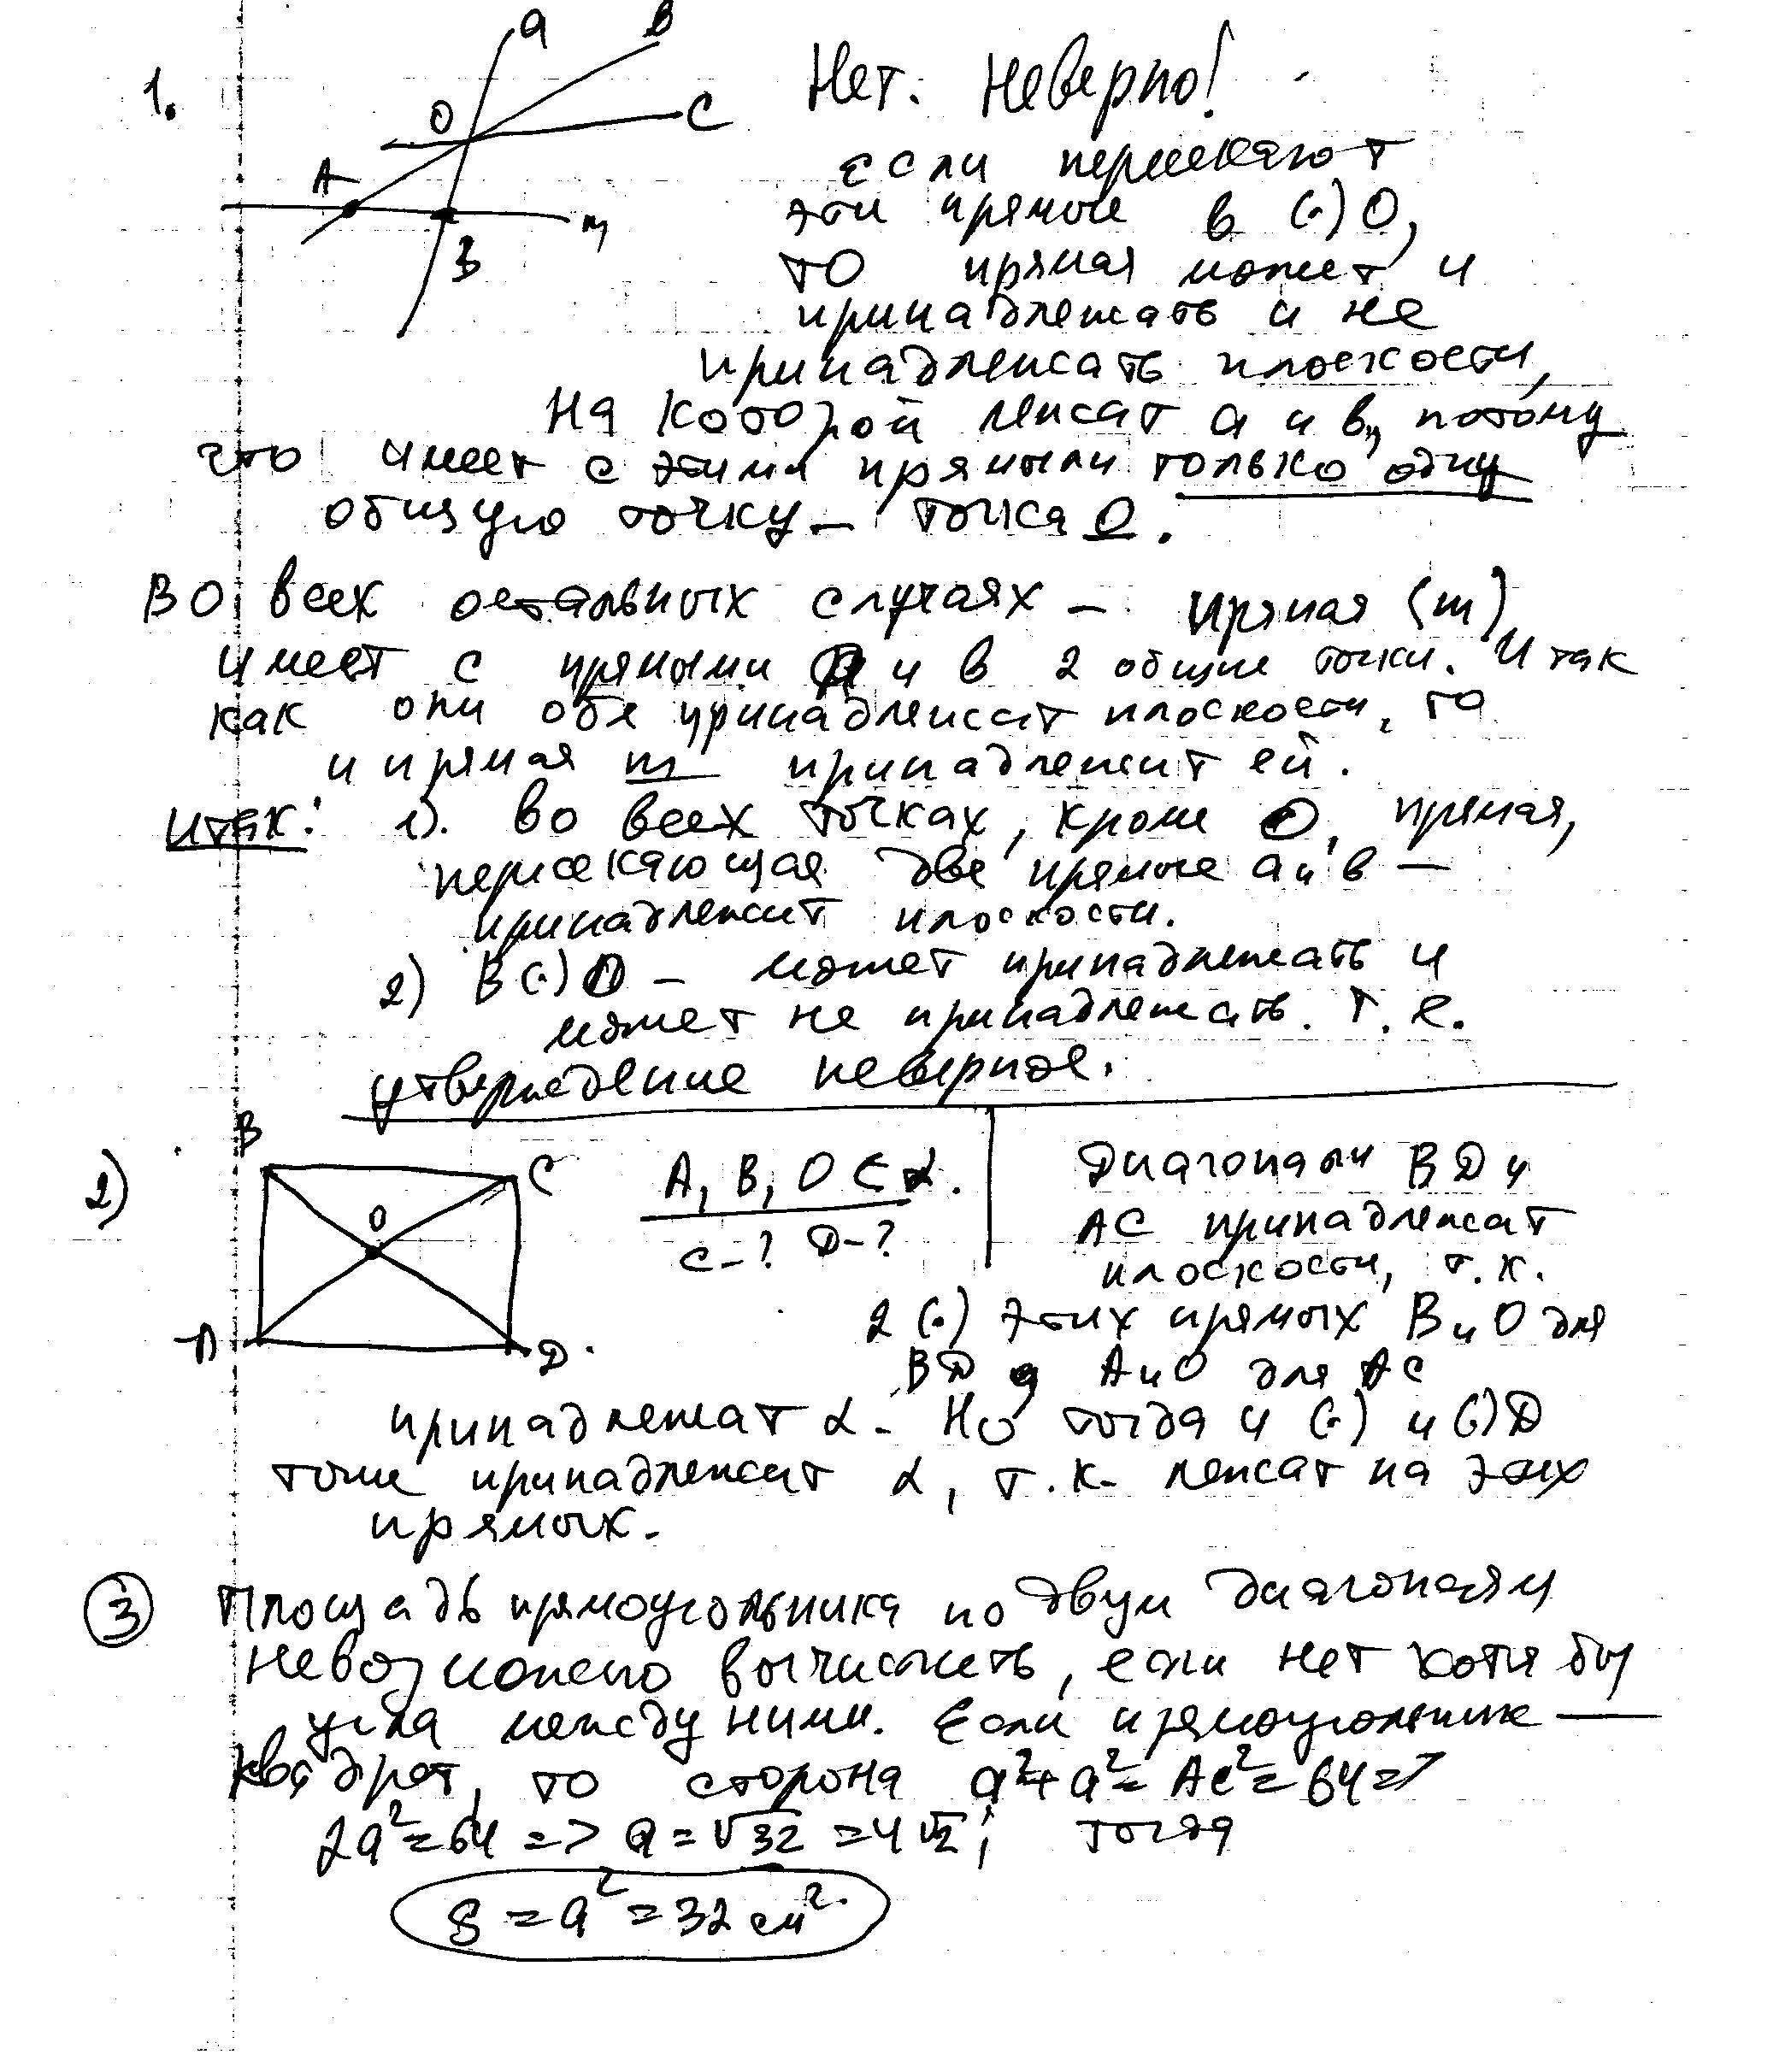 1.
a
в
О
С
А
В
m
Нет. Неверно!
Если пересекают
эти прямые в (·) О,
то прямая может и
принадлежать и не
принадлежать плоскости,
на которой лежат а и в, потому
что имеет с этими прямыми только одну
общую точку – точка О.
Во всех остальных случаях – прямая (m)
имеет с прямыми а и в 2 общие точки. И так
как они обе принадлежат плоскости, то
и прямая m принадлежит ей.
Итак: 1). Во всех точках, кроме О, прямая,
пересекающая две прямые а и в –
принадлежит плоскости.
2) В (·) О – может принадлежать и
может не принадлежать. Т. е.
утверждение неверное.
2)
В
С
О
А
D.
А, В, О ⊂ α.
С-? D-?
Диагонали ВD и
АС принадлежат
плоскости, т.к.
2 (·) этих прямых В и О для
ВD и А и О для АС
принадлежат α. Но тогда и (·) и (·) D
тоже принадлежит α, т.к. лежат на этих
прямых.
3 Площадь прямоугольника по двум диагоналям
невозможно вычислить, если нет хотя бы
угла между ними. Если прямоугольник –
квадрат, то сторона a²+a²=АС²=64=>
2a²=64 => a=√32 =4√2; тогда
S = a² = 32 см².